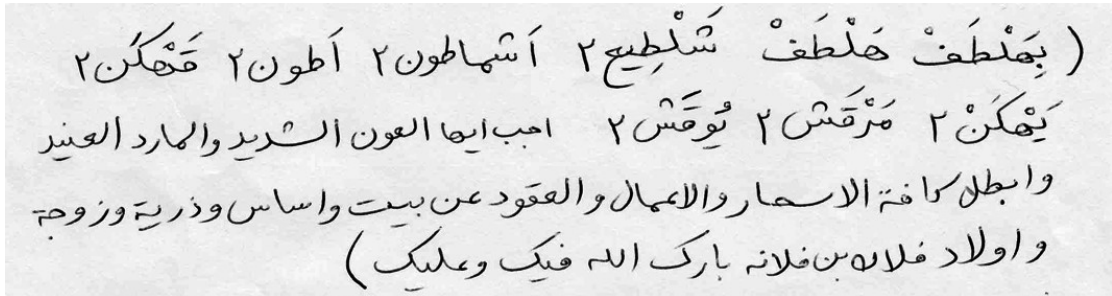 ( بِهَلْطَفْ هَلْطَفْ شَلْطِيعٍ ٢ اَشماطون ٢ اَطون ٢ مَهْكَن ٢
يَهْكَنْ ٢ مَرْقَش ٢ يُوقَش ٢ اجب ايها العون الشديد والمارد العنيد
وابطل كافة الاسحار والاعمال والعقود عن بيت واساس وذرية وزوجة
واولاد فلان بن فلانه بارك الله فيك وعليك )